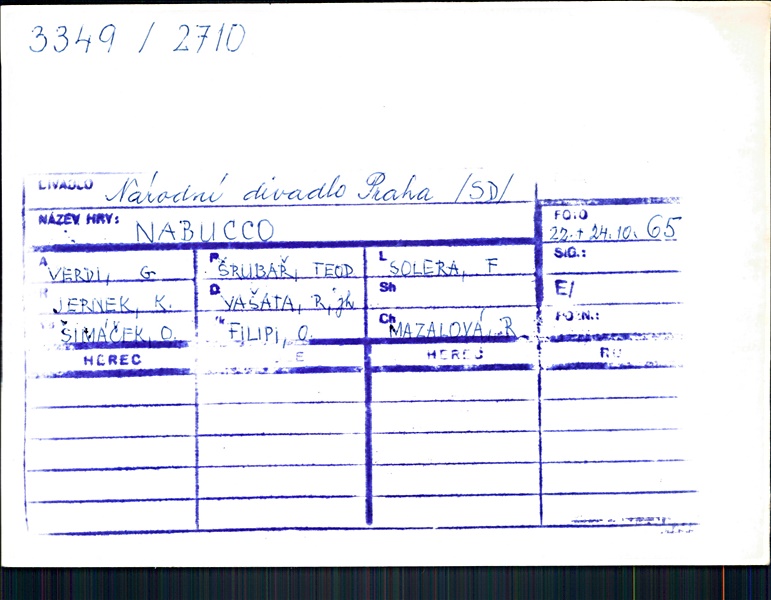 3349 / 2710
DIVADLO Národní divadlo Praha /SD/
NÁZEV HRY: NABUCCO
FOTO 22.+24.10. 65
A VERDI, G
P ŠRUBAŘ, TEOD
L SOLERA, F
SIG.:
R JERNEK, K.
D VAŠATA, R, jh
Sh
E/
ŠIMÁČEK, O.
FILIPI, O.
Ch MAZALOVÁ, R
POZN.:
HEREC
E
HEREC